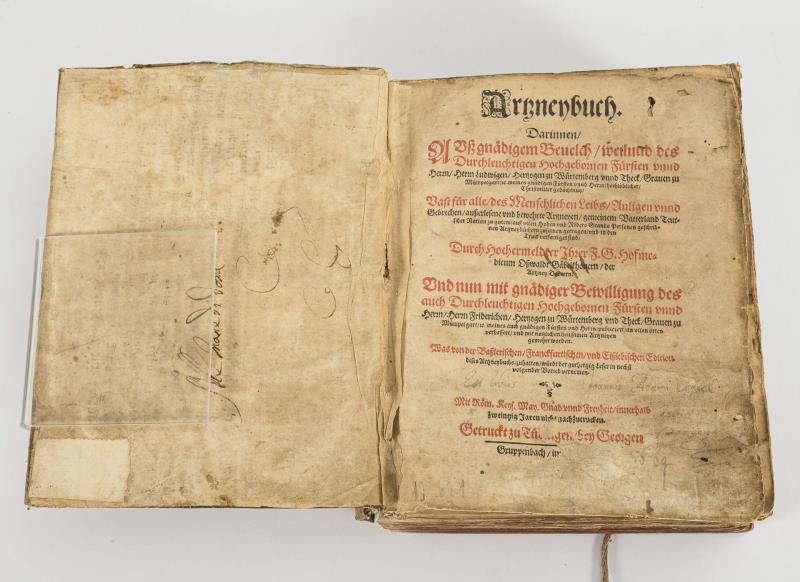 Artzneybuch.
Darinnen/
Auß gnädigem Beuelch/ weilund des
Durchleuchtigen Hochgebornen Fürsten vnnd
Herrn/ Herrn Ludwigen/ Hertzogen zu Würtemberg vnnd Theck/ Grauen zu
Mümppelgart/ ꝛc. meines gnädigen Fürsten vnnd Herrn/ hochlöblicher/
Christmilter gedächtnus/
Vast für alle/ des Menschlichen Leibs/ Anligen vnnd
Gebrechen/ außerlesene vnd bewehrte Artzneyen/ gemeinem Vatterland Teut-
scher Nation zu gutem/ auß vilen Hohen vnd Niders Stands Personen geschrib-
nen Artzneybüchern zusamen getragen/ vnd in den
Truck verfertiget sind/
Durch Hochermeldter Ihrer F. G. Hofme-
dicum Oßwaldt Gäbelkhouern/ der
Artzney Doctorn/
Vnd nun mit gnädiger Bewilligung des
auch Durchleuchtigen Hochgebornen Fürsten vnnd
Herrn/ Herrn Friderichen/ Hertzogen zu Würtemberg vnd Theck/ Grauen zu
Mümppelgart/ ꝛc. meines auch gnädigen Fürsten vnd Herrn/ publiciert/ an vilen orten
verbessert/ vnd mit nutzlichen heilsamen Artzneyen
gemehrt worden.
Was von der Baßlerischen/ Franckfurtischen/ vnd Eißlebischen Edition
dises Artzneybuchs zuhalten/ würdt der gutherzig Leser in nechst
volgender Vorred vernemen.
Mit Röm. Keys. May. Gnad vnnd Freyheit/ innerhalb
zweintzig Jaren nicht nachzutrucken.
Getruckt zu Tübingen/ bey Georgen
Gruppenbach/